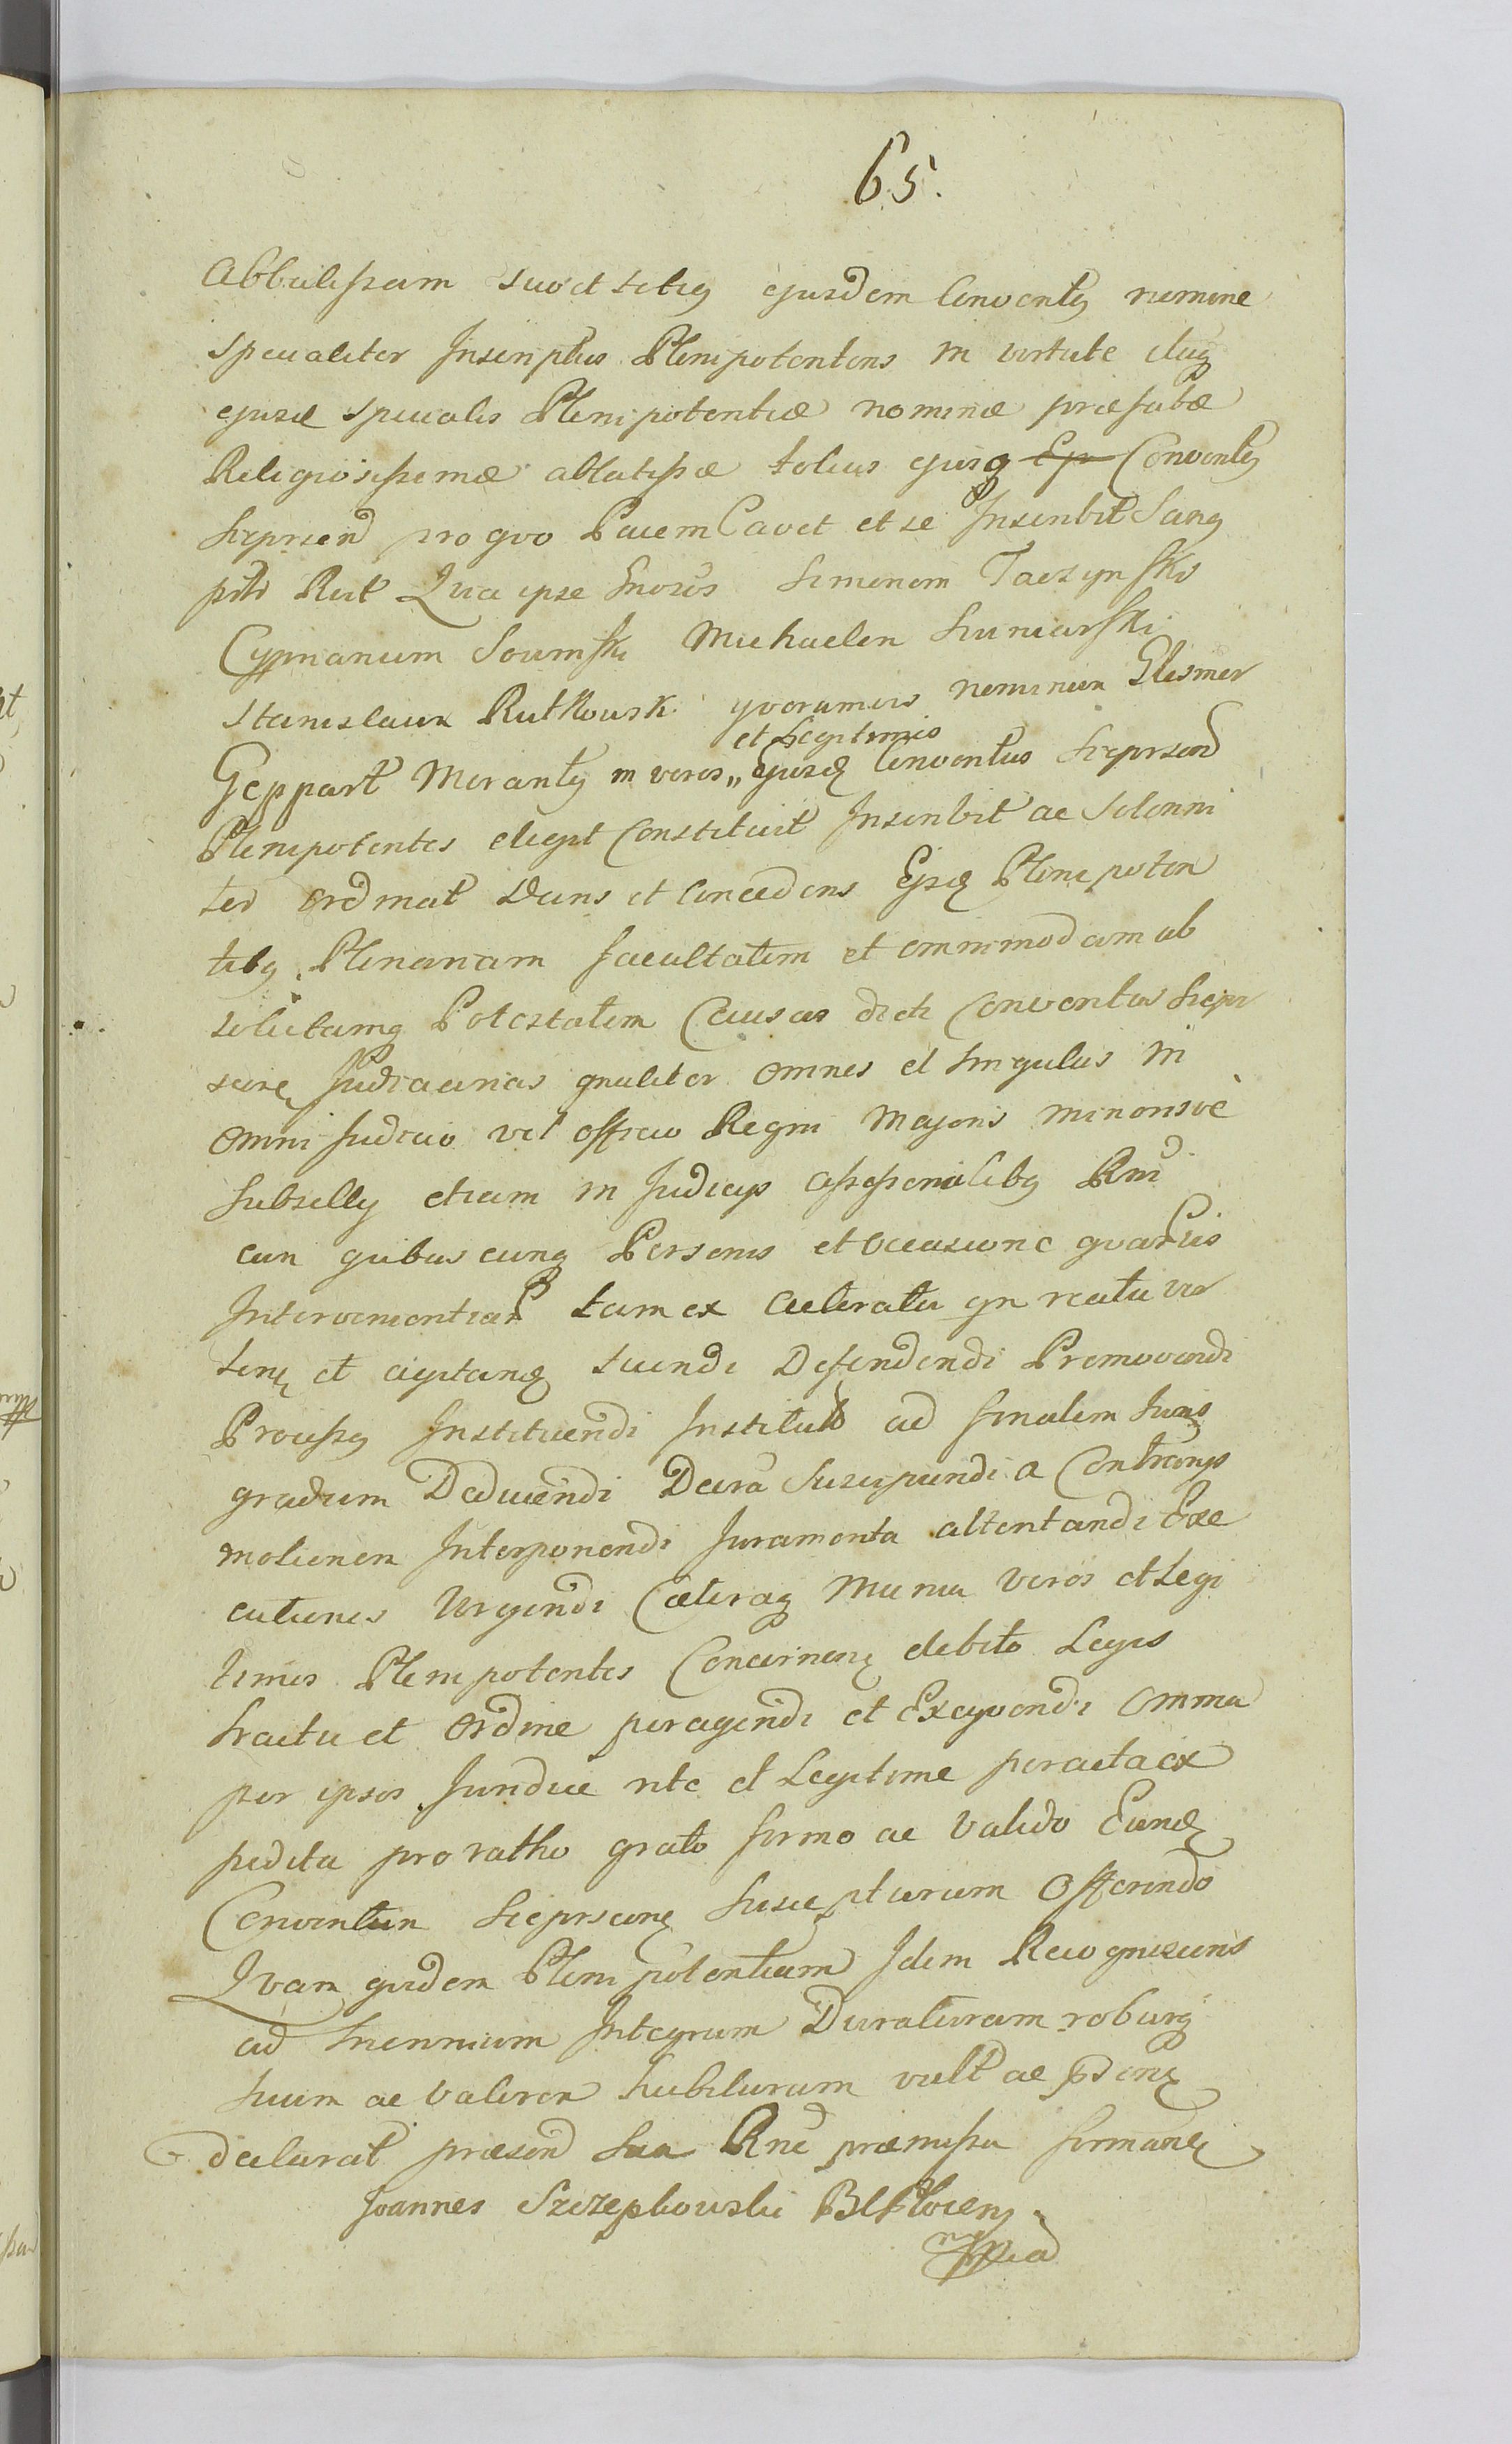 65.
Abbatissam suo et totiq ejusdem Conventq nomine
specialiter Inscriptus Plenipotentens in virtute
ejusd specialis Plenipotentiæ nominæ præfatæ
Religiosissimæ abbatissæ totius ejusq Ep Conventq
Sieprscen pro quo Pacem Cavet et se Inscribit Sanq
Rut Qua ipse Gnosos Simonem Taczynski
Cyprianum Soumski Michaelem
Stanislaum Rutkowski quorumvis neminem
et Legitimos
Geppart Morantq in veros „ Ejusd Conventus Sieprscen
Plenipotentes elegit Constituit Inscribit ac Solenni
ter ordinat Dans et Concedens Ejsd Plenipoten
tibq Plenariam facultatem et omnimodam ab
solutamq Potestatem Causas dicti Conventus Siepr
scen Judiciarias gnaliter omnes et singulas in
omni Judicio vel officio Regni Majoris minorisve
Subsellij etiam in Judicijs assessorialibq Rni
cum quibuscunq Personis et occasione quarumvis
Intervenientiar tam ex actoratu qn reatu ver
ten et agitand tuendi Defendendi Promovendi
Processq Instituendi Institutos ad finalem Suaq
gradum Deducendi Decra Suscipiendi a Contrarijs
motionem Interponendi Juramenta attentandi Exe
cutiones Urgendi Cæteraq Munia Veros et Legi
timos Plenipotentes Concernen debito Legis
tractu et Ordine peragendi et Exequendi Omnia
per ipsos Juridice rite et Legitime peracta ex
pedita pro ratho grato firmo ac Valido Eund
Conventum Sieprscen Suscepturum Offerendo
Quam quidem Plenipotentiam Idem Recognoscens
ad triennium Integrum Duraturam roburq
suum ac Valorem habituram vult ac
declarat præsen Sua Rne præmissa firman
Joannes Szczepkowski BLPlocens
mppria